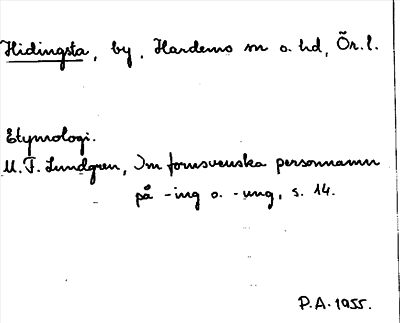 Hidingsta, by, Hardemo sn o. hd, Ör. l.
Etymologi.
M. F. Lundgren, Om fornsvenska personnamn
på -ing o. -ung, s. 14.
P.A. 1955.